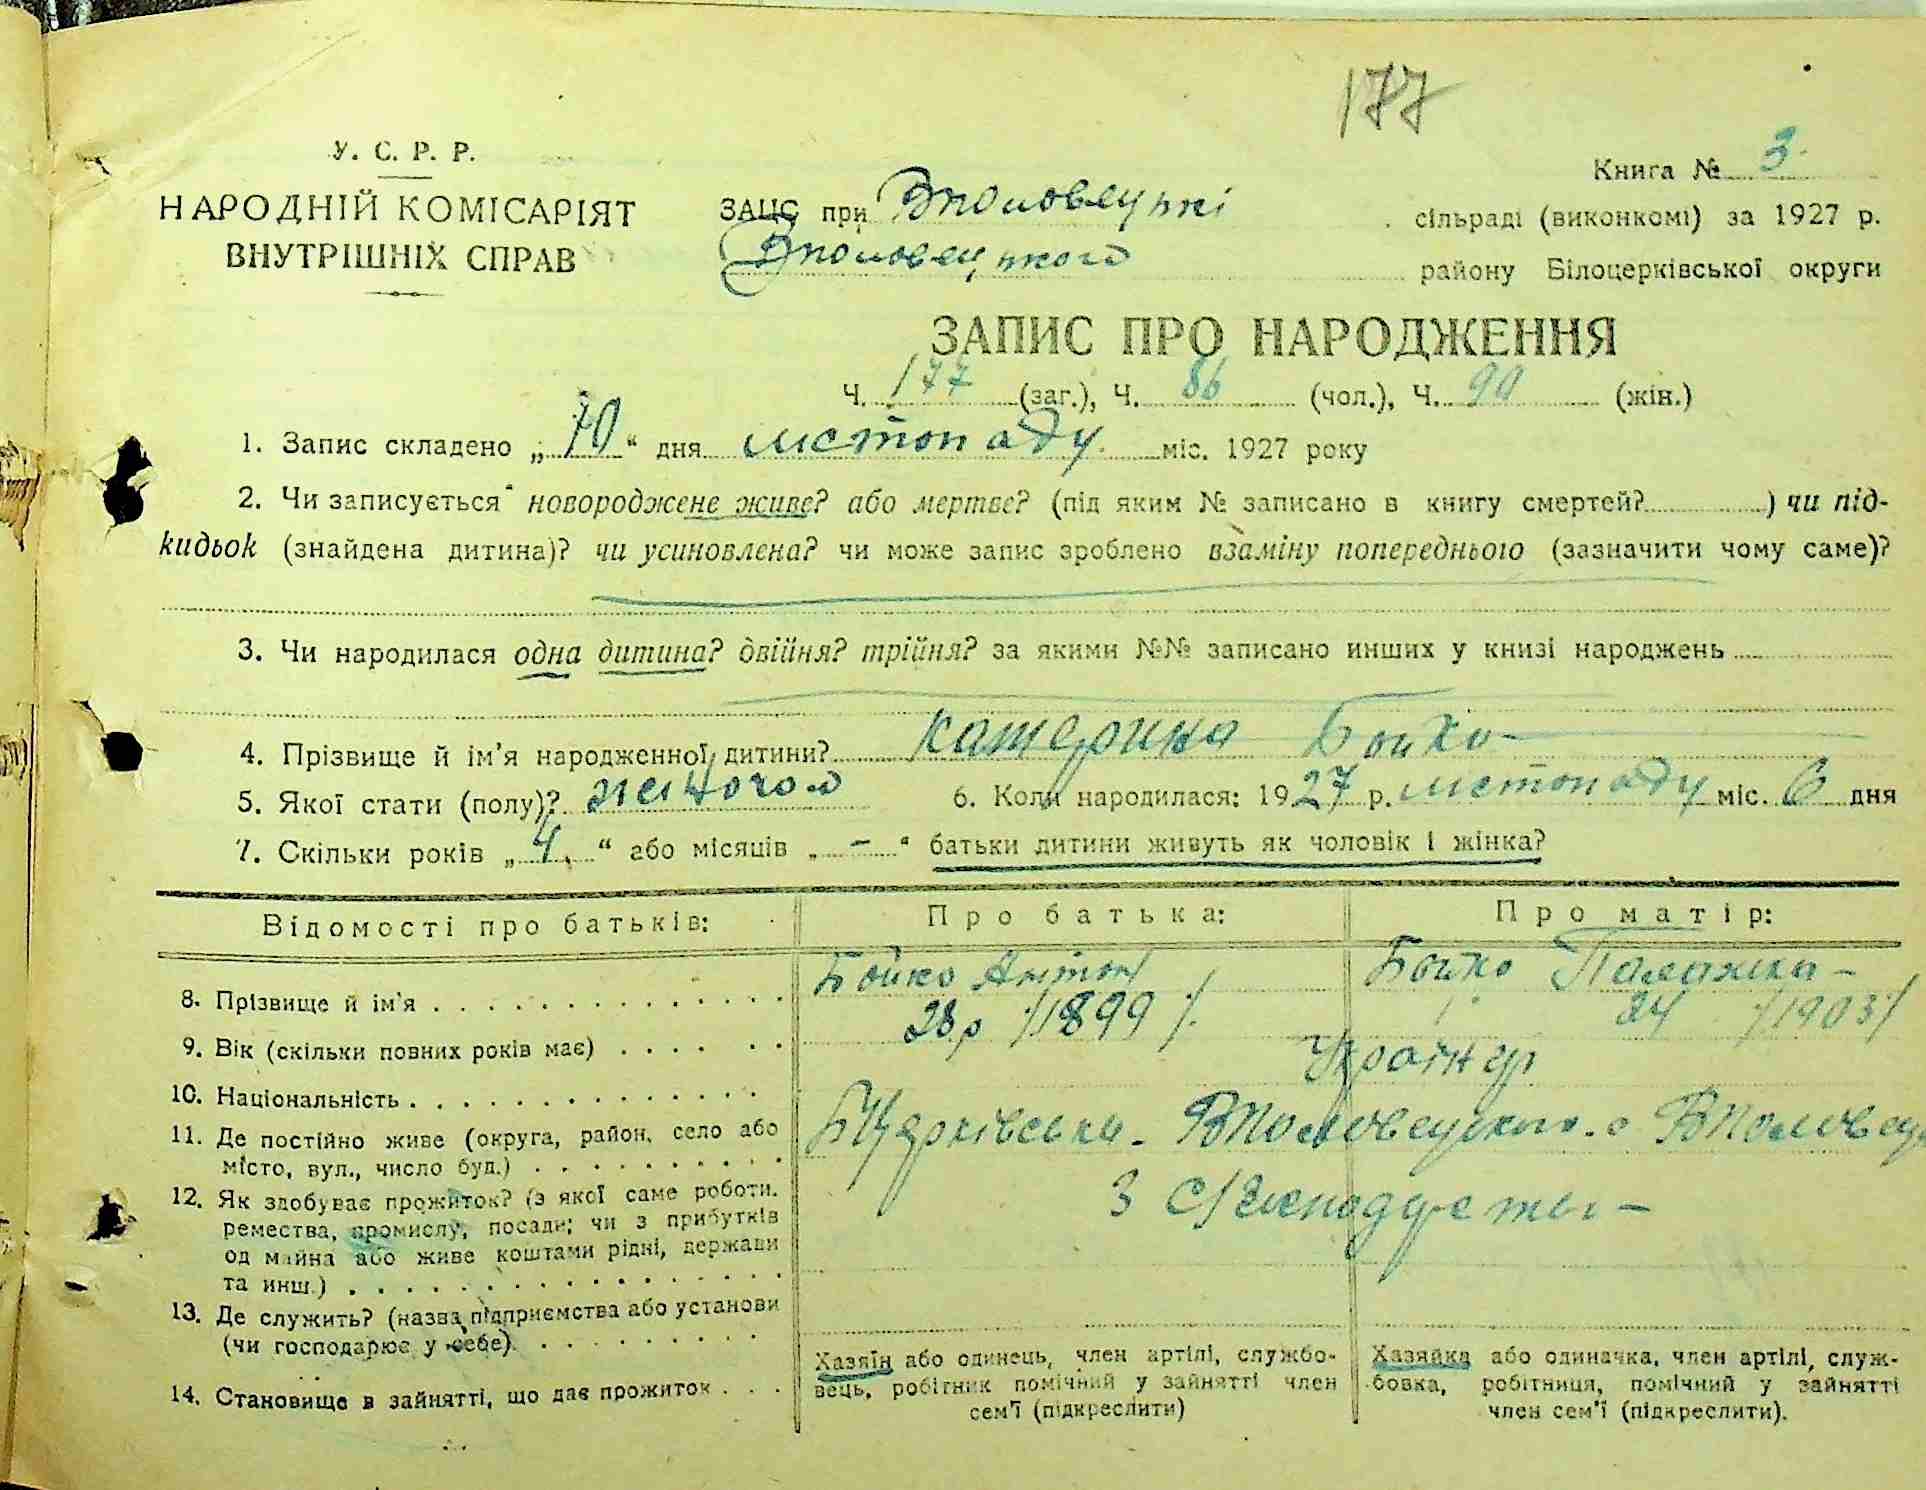 177
У. С. Р. Р.
НАРОДНІЙ КОМІСАРІЯТ
ВНУТРІШНІХ СПРАВ
Книга № 3.
ЗАЦС при Вполовецькі сільраді (виконкомі) за 1927 р.
Вполовецького району Білоцерківської округи
ЗАПИС ПРО НАРОДЖЕННЯ
Ч. 177 (заг.), Ч. 86 (чол.), Ч. (жін.)
1. Запис складено „10“ дня листопаду міс. 1927 року
2. Чи записується новороджене живе? або мертве? (під яким № записано в книгу смертей?) чи під-
кидьок (знайдена дитина)? чи усиновлена? чи може запис зроблено взаміну попереднього (зазначити чому саме)?
3. Чи народилася одна дитина? двійня? трійня? за якими №№ записано инших у книзі народжень
4. Прізвище й ім'я народженної дитини? Катерина Бойко
5. Якої стати (полу)? жіночого 6. Коли народилася: 1927 р. листопаду міс. 6 дня
7. Скільки років „4.“ або місяців „–“ батьки дитини живуть як чоловік і жінка?
Відомості про батьків: Про батька: Про матір:
8. Прізвище й ім'я Бойко Антон Бойко Палажка –
9. Вік (скільки повних років має) 28 р /1899/. 24 /1903/
10. Національність Українці
11. Де постійно живе (округа, район, село або
місто, вул., число буд.) БЦерківська. Вполовецького. с Вполовец
12. Як здобуває прожиток? (з якої саме роботи.
ремества, промислу, посади; чи з прибутків
од майна або живе коштами рідні, держави
та инш.) З С/Господарства –
13. Де служить? (назва підприємства або установи
(чи господарює у себе)
14. Становище в зайнятті, що дає прожиток
Хазяїн або одинець, член артілі, службо-
вець, робітник помічний у зайнятті член
сем'ї (підкреслити)
Хазяйка або одиначка, член артілі, служ-
бовка, робітниця, помічний у зайнятті
член сем'ї (підкреслити).